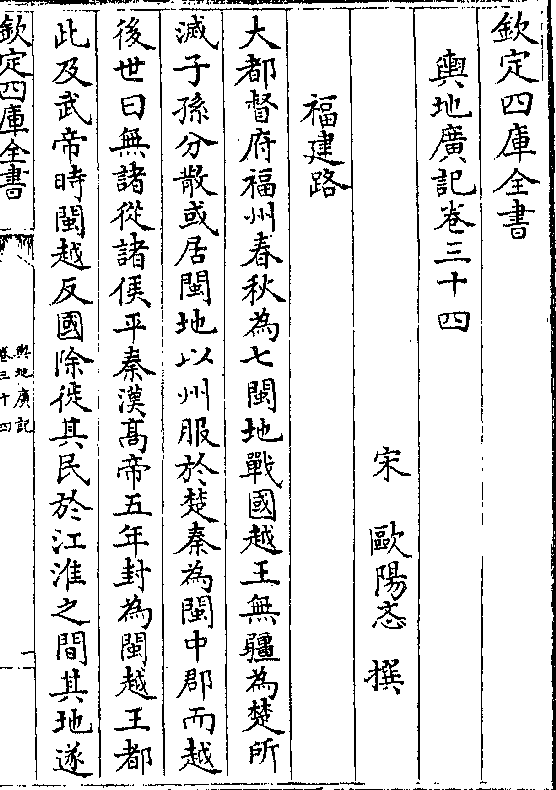 欽定四庫全書
輿地廣記卷三十四
宋 歐陽忞 撰
福建路
大都督府福州春秋為七閩地戰國越王無疆為楚所
滅子孫分散或居閩地以州服於楚秦為閩中郡而越
後世曰無諸從諸侯平秦漢髙帝五年封為閩越王都
此及武帝時閩越反國除徙其民於江淮之間其地遂
欽定四庫全書
輿地廣記
卷三十四
一